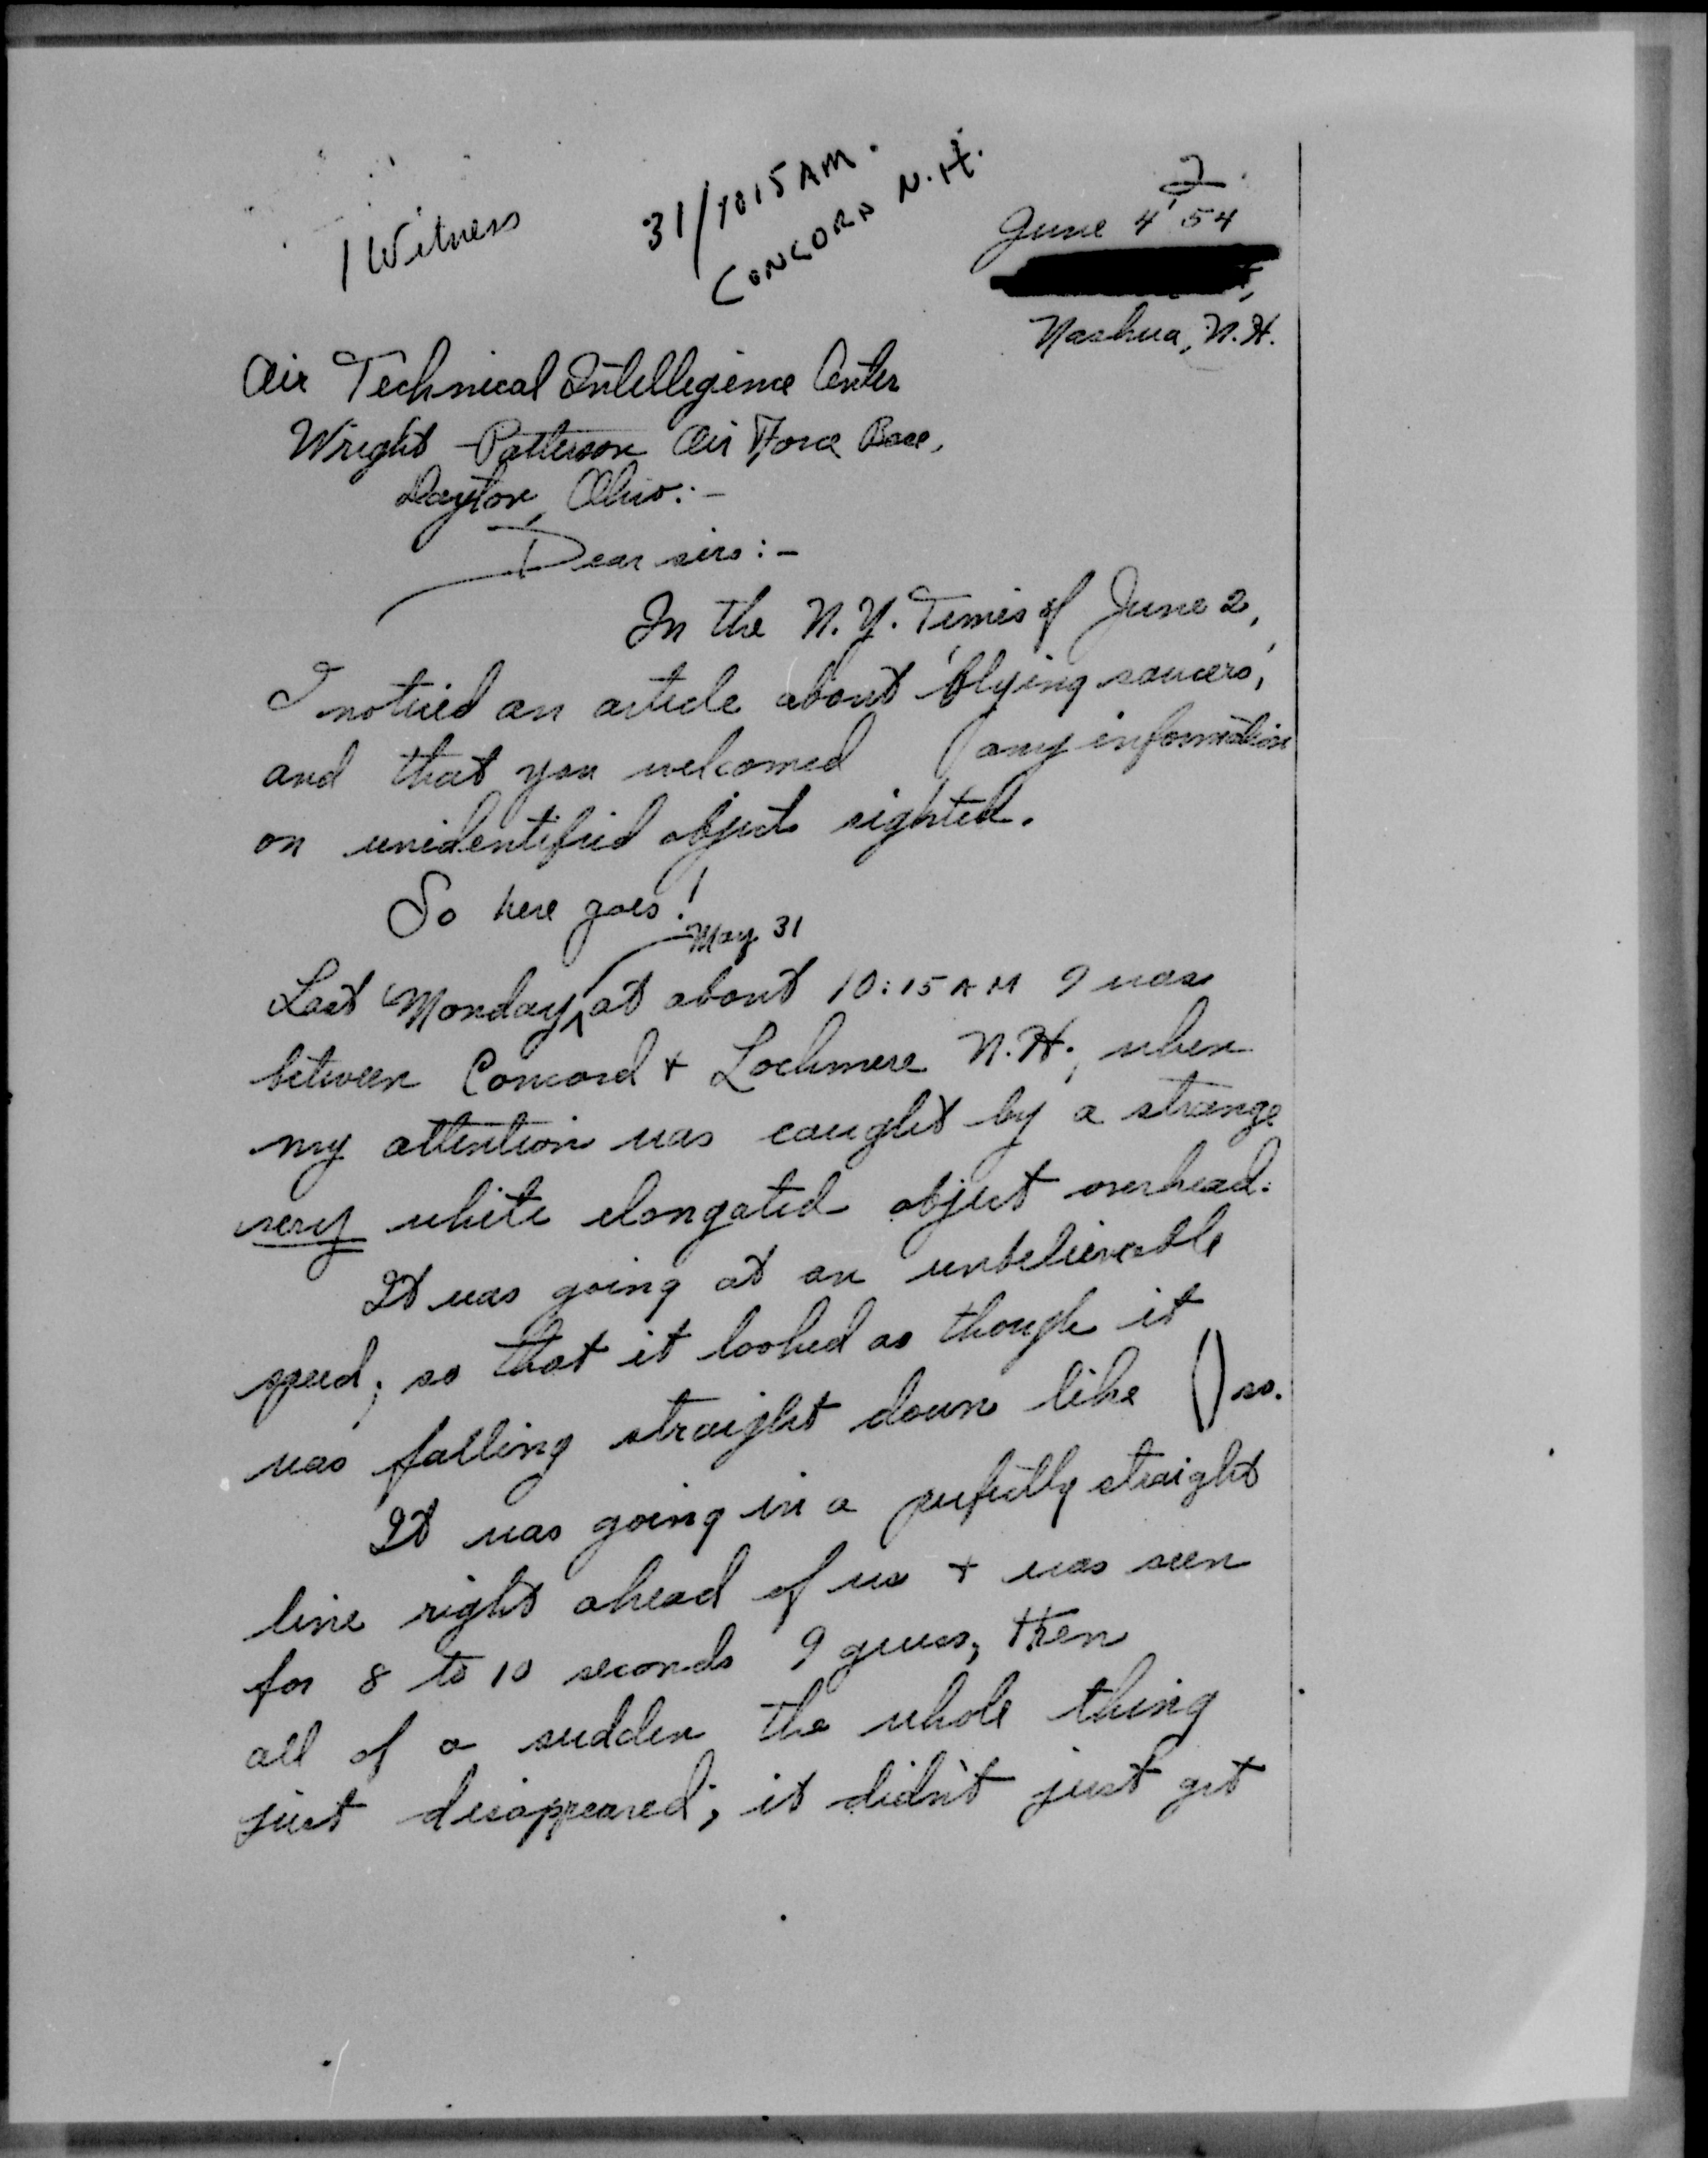 1 Witness
31/1015 AM.
CONCORD N.H.
2
June 4 '54
Nashua, N.H.
Air Technical Intellegence Center
Wright-Patterson Air Force Base,
Dayton, Ohio:-
Dear sirs:-
In the N.Y. Times of June 2,
I noticed an article about 'flying saucers',
and that you welcomed any information
on unidentified objects sighted.
So here goes!
May 31
Last Monday, at about 10:15 AM I was
between Concord + Lochmere N.H., when
my attention was caught by a strange
very white elongated object overhead.
It was going at an unbelieveable
speed; so that it looked as though it
was falling straight down like () so.
It was going in a perfectly straight
line right ahead of us + was seen
for 8 to 10 seconds I guess, then
all of a sudden the whole thing
just disappeared; it didn't just get